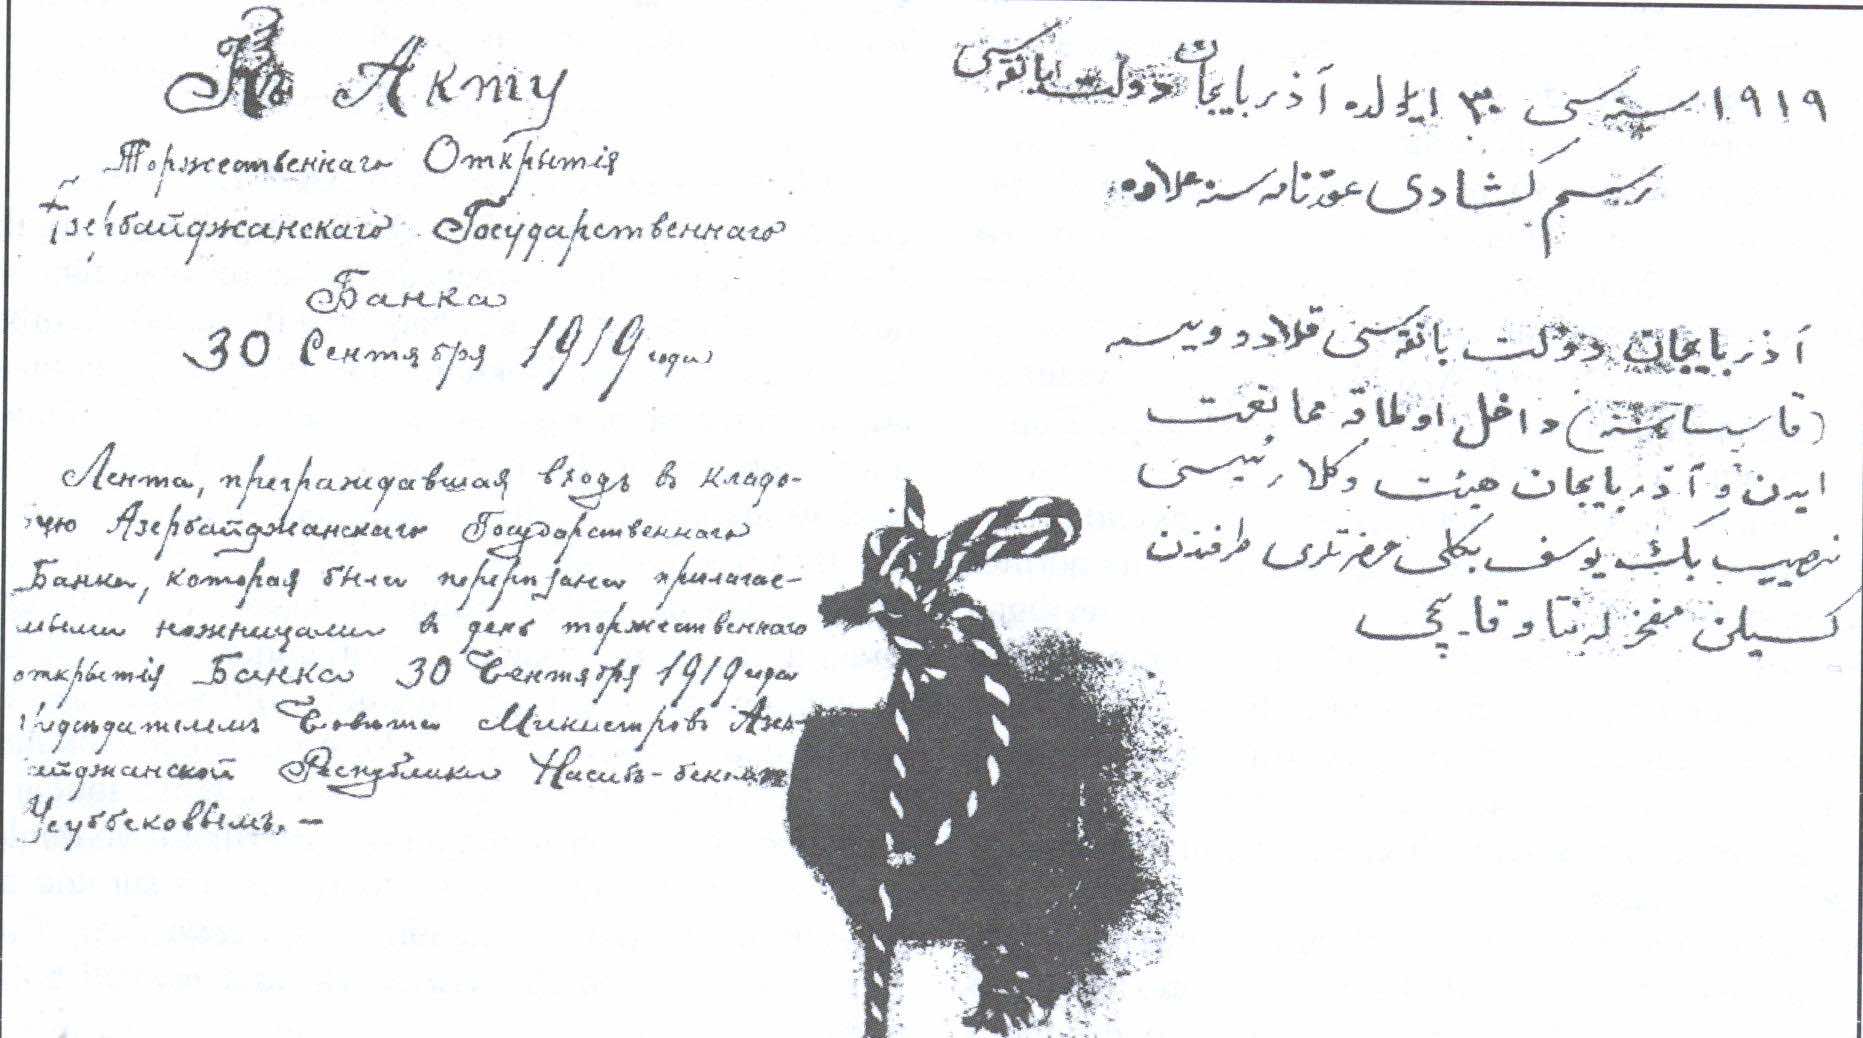 Къ Акту
Торжественнаго Открытія
Азербайджанскаго Государственнаго
Банка
30 Сентября 1919 года
Лента, преграждавшая входъ въ кладо-
вую Азербайджанскаго Государственнаго
Банка, которая была перерѣзана прилагае-
мыми ножницами въ день торжественнаго
открытія Банка 30 Сентября 1919 года
Предсѣдателемъ Совѣта Министровъ Азер-
байджанской Республики Насибъ-бекомъ
Усуббековымъ. —
١٩١٩ سنه سی ٣٠ ایلولده آذربایجان دولت بانقه سی
رسم کشادی عقدنامه سنه علاوه
آذربایجان دولت بانقه سی قلادوویسه
داخل اوطاقه ممانعت
ایدن و آذربایجان هیئت وکلا رئیسی
نصیب بك یوسف بکلی حضرتلری طرفندن
کسیلن لنتا و قایچی